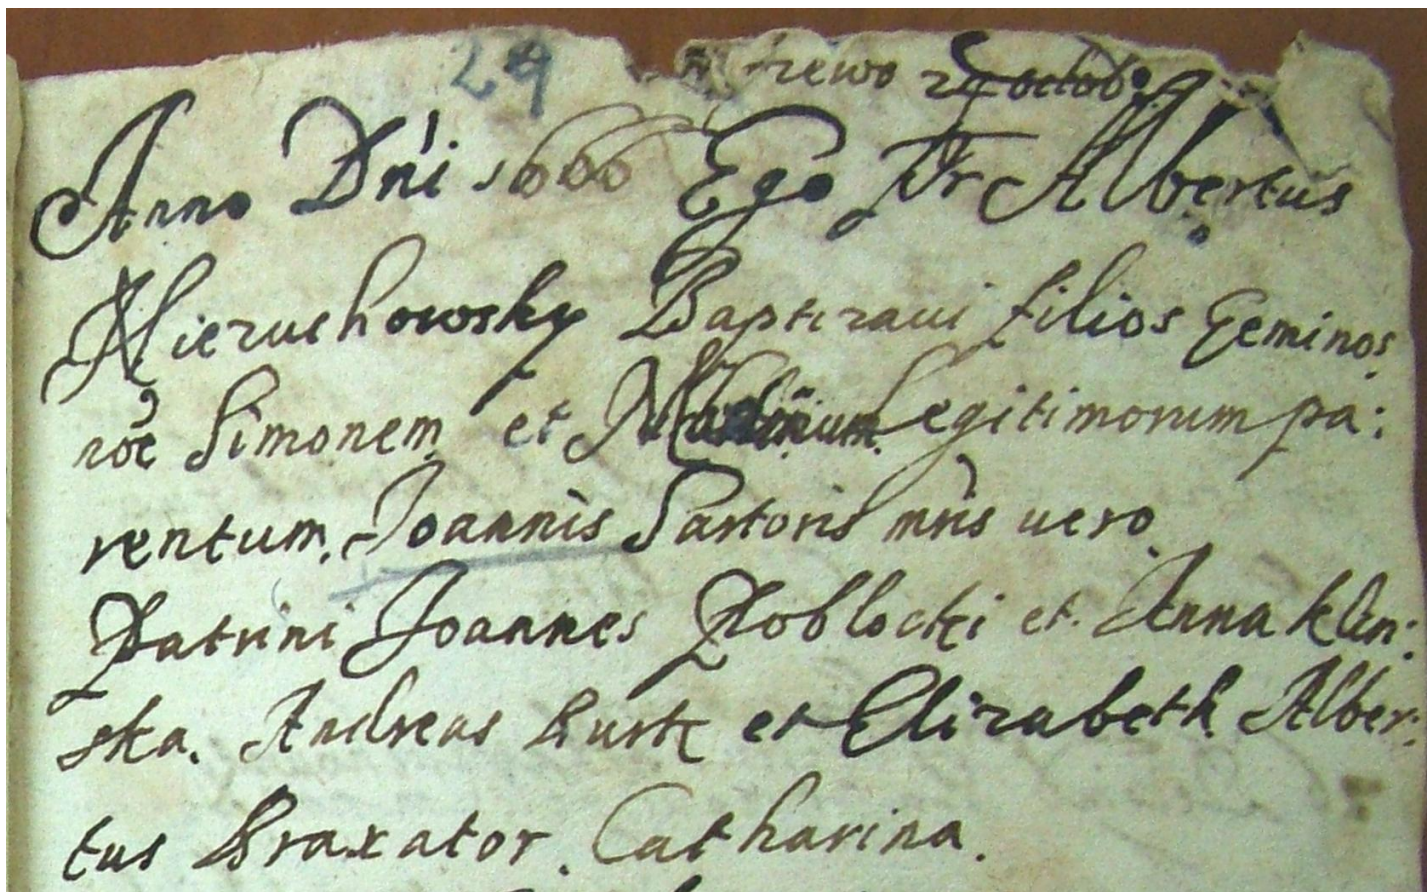 29
rewo 29 octob:
Anno Dni 1666 Ego Fr Albertus
Nieruchowsky Baptizaui filios Geminos
noe Simonem et Legitimorum pa:
rentum. Joannis Sartoris mris uero
Patrini Joannes Pobłocki et Anna Klin:
ska. Andreas Kurtz et Elizabeth. Alber:
tus Braxator. Catharina.